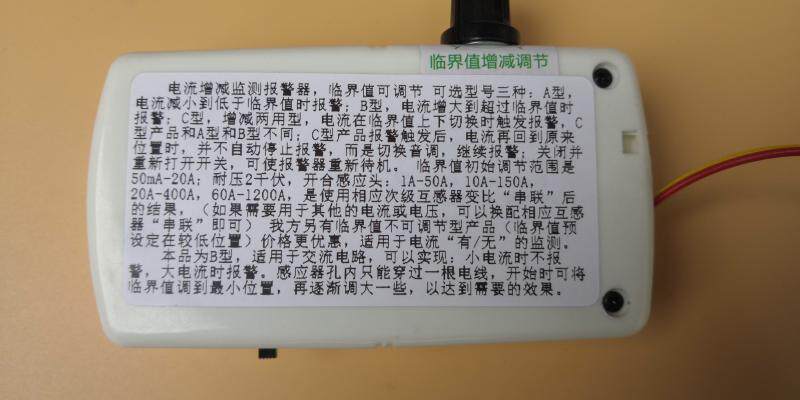 临界值增减调节
电流增减监测报警器，临界值可调节 可选型号三种：A型，
电流减小到低于临界值时报警；B型，电流增大到超过临界值时
报警；C型，增减两用型，电流在临界值上下切换时触发报警，C
型产品和A型和B型不同；C型产品报警触发后，电流再回到原来
位置时，并不自动停止报警，而是切换音调，继续报警；关闭并
重新打开开关，可使报警器重新待机。 临界值初始调节范围是
50mA-20A；耐压2千伏，开合感应头：1A-50A，10A-150A，
20A-400A，60A-1200A，是使用相应次级互感器变比“串联”后
的结果，（如果需要用于其他的电流或电压，可以换配相应互感
器“串联”即可） 我方另有临界值不可调节型产品（临界值预
设定在较低位置）价格更优惠，适用于电流“有/无”的监测。
本品为B型，适用于交流电路，可以实现：小电流时不报
警，大电流时报警。感应器孔内只能穿过一根电线，开始时可将
临界值调到最小位置，再逐渐调大一些，以达到需要的效果。